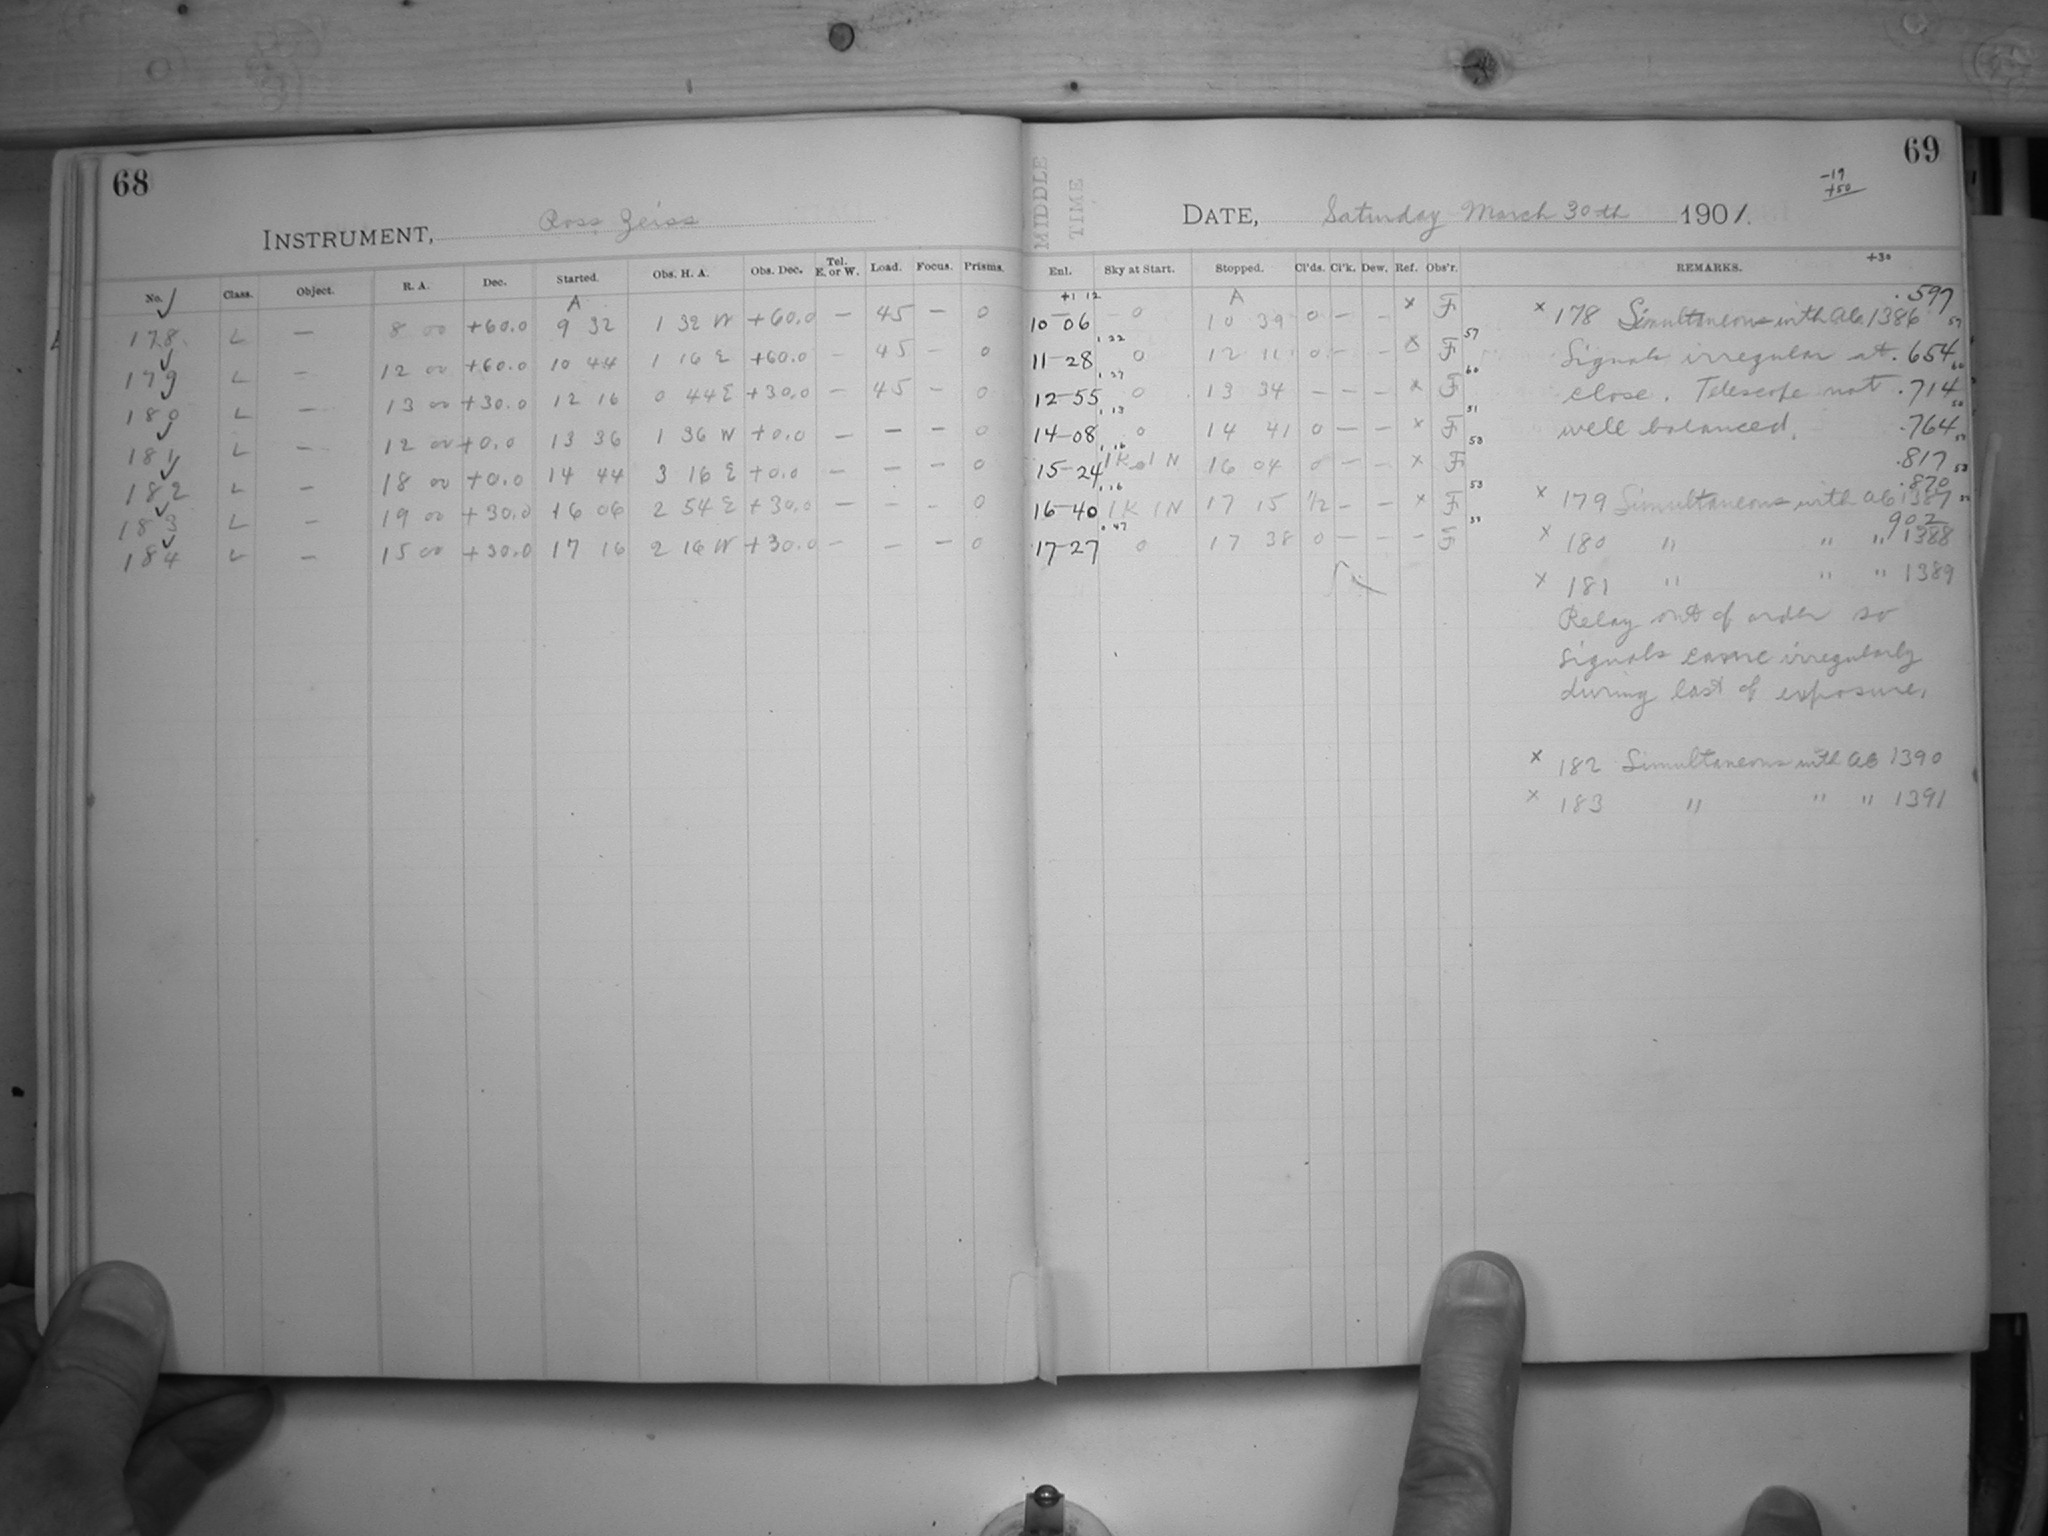 68
INSTRUMENT, Ross Zeiss
No. Class. Object. R. A. Dec. Started. Obs. H. A. Obs. Dec. Tel. E. or W. Load. Focus. Prisms.
A
178 L — 8 00 +60.0 9 32 1 32 W +60.0 — 45 — 0
179 L — 12 00 +60.0 10 44 1 16 E +60.0 — 45 — 0
180 L — 13 00 +30.0 12 16 0 44 E +30.0 — 45 — 0
181 L — 12 00 +0.0 13 36 1 36 W +0.0 — — — 0
182 L — 18 00 +0.0 14 44 3 16 E +0.0 — — — 0
183 L — 19 00 +30.0 16 06 2 54 E +30.0 — — — 0
184 L — 15 00 +30.0 17 16 2 16 W +30.0 — — — 0
69
-19
+50
MIDDLE
TIME
DATE, Saturday March 30th 1901.
+30
Enl. Sky at Start. Stopped. Cl'ds. Cl'k. Dew. Ref. Obs'r. REMARKS.
+1 12 A .597
10-06 0 10 39 0 — — × F
1 22 57
11-28 0 12 11 0 — — × F
1 27 60
12-55 0 13 34 — — — × F
1 13 51
14-08 0 14 41 0 — — × F
1 16 53
15-24 1K 1N 16 04 0 — — × F
1 16 53
16-40 1K 1N 17 15 1/2 — — × F
0 47
17-27 0 17 38 0 — — — F
× 178 Simultaneous with AC 1386
Signals irregular at .654
close. Telescope not .714
well balanced. .764
.817
.870
× 179 Simultaneous with AC 1387
902
× 180 " " " 1388
× 181 " " " 1389
Relay out of order so
signals came irregularly
during last of exposure.
× 182 Simultaneous with AC 1390
× 183 " " " 1391